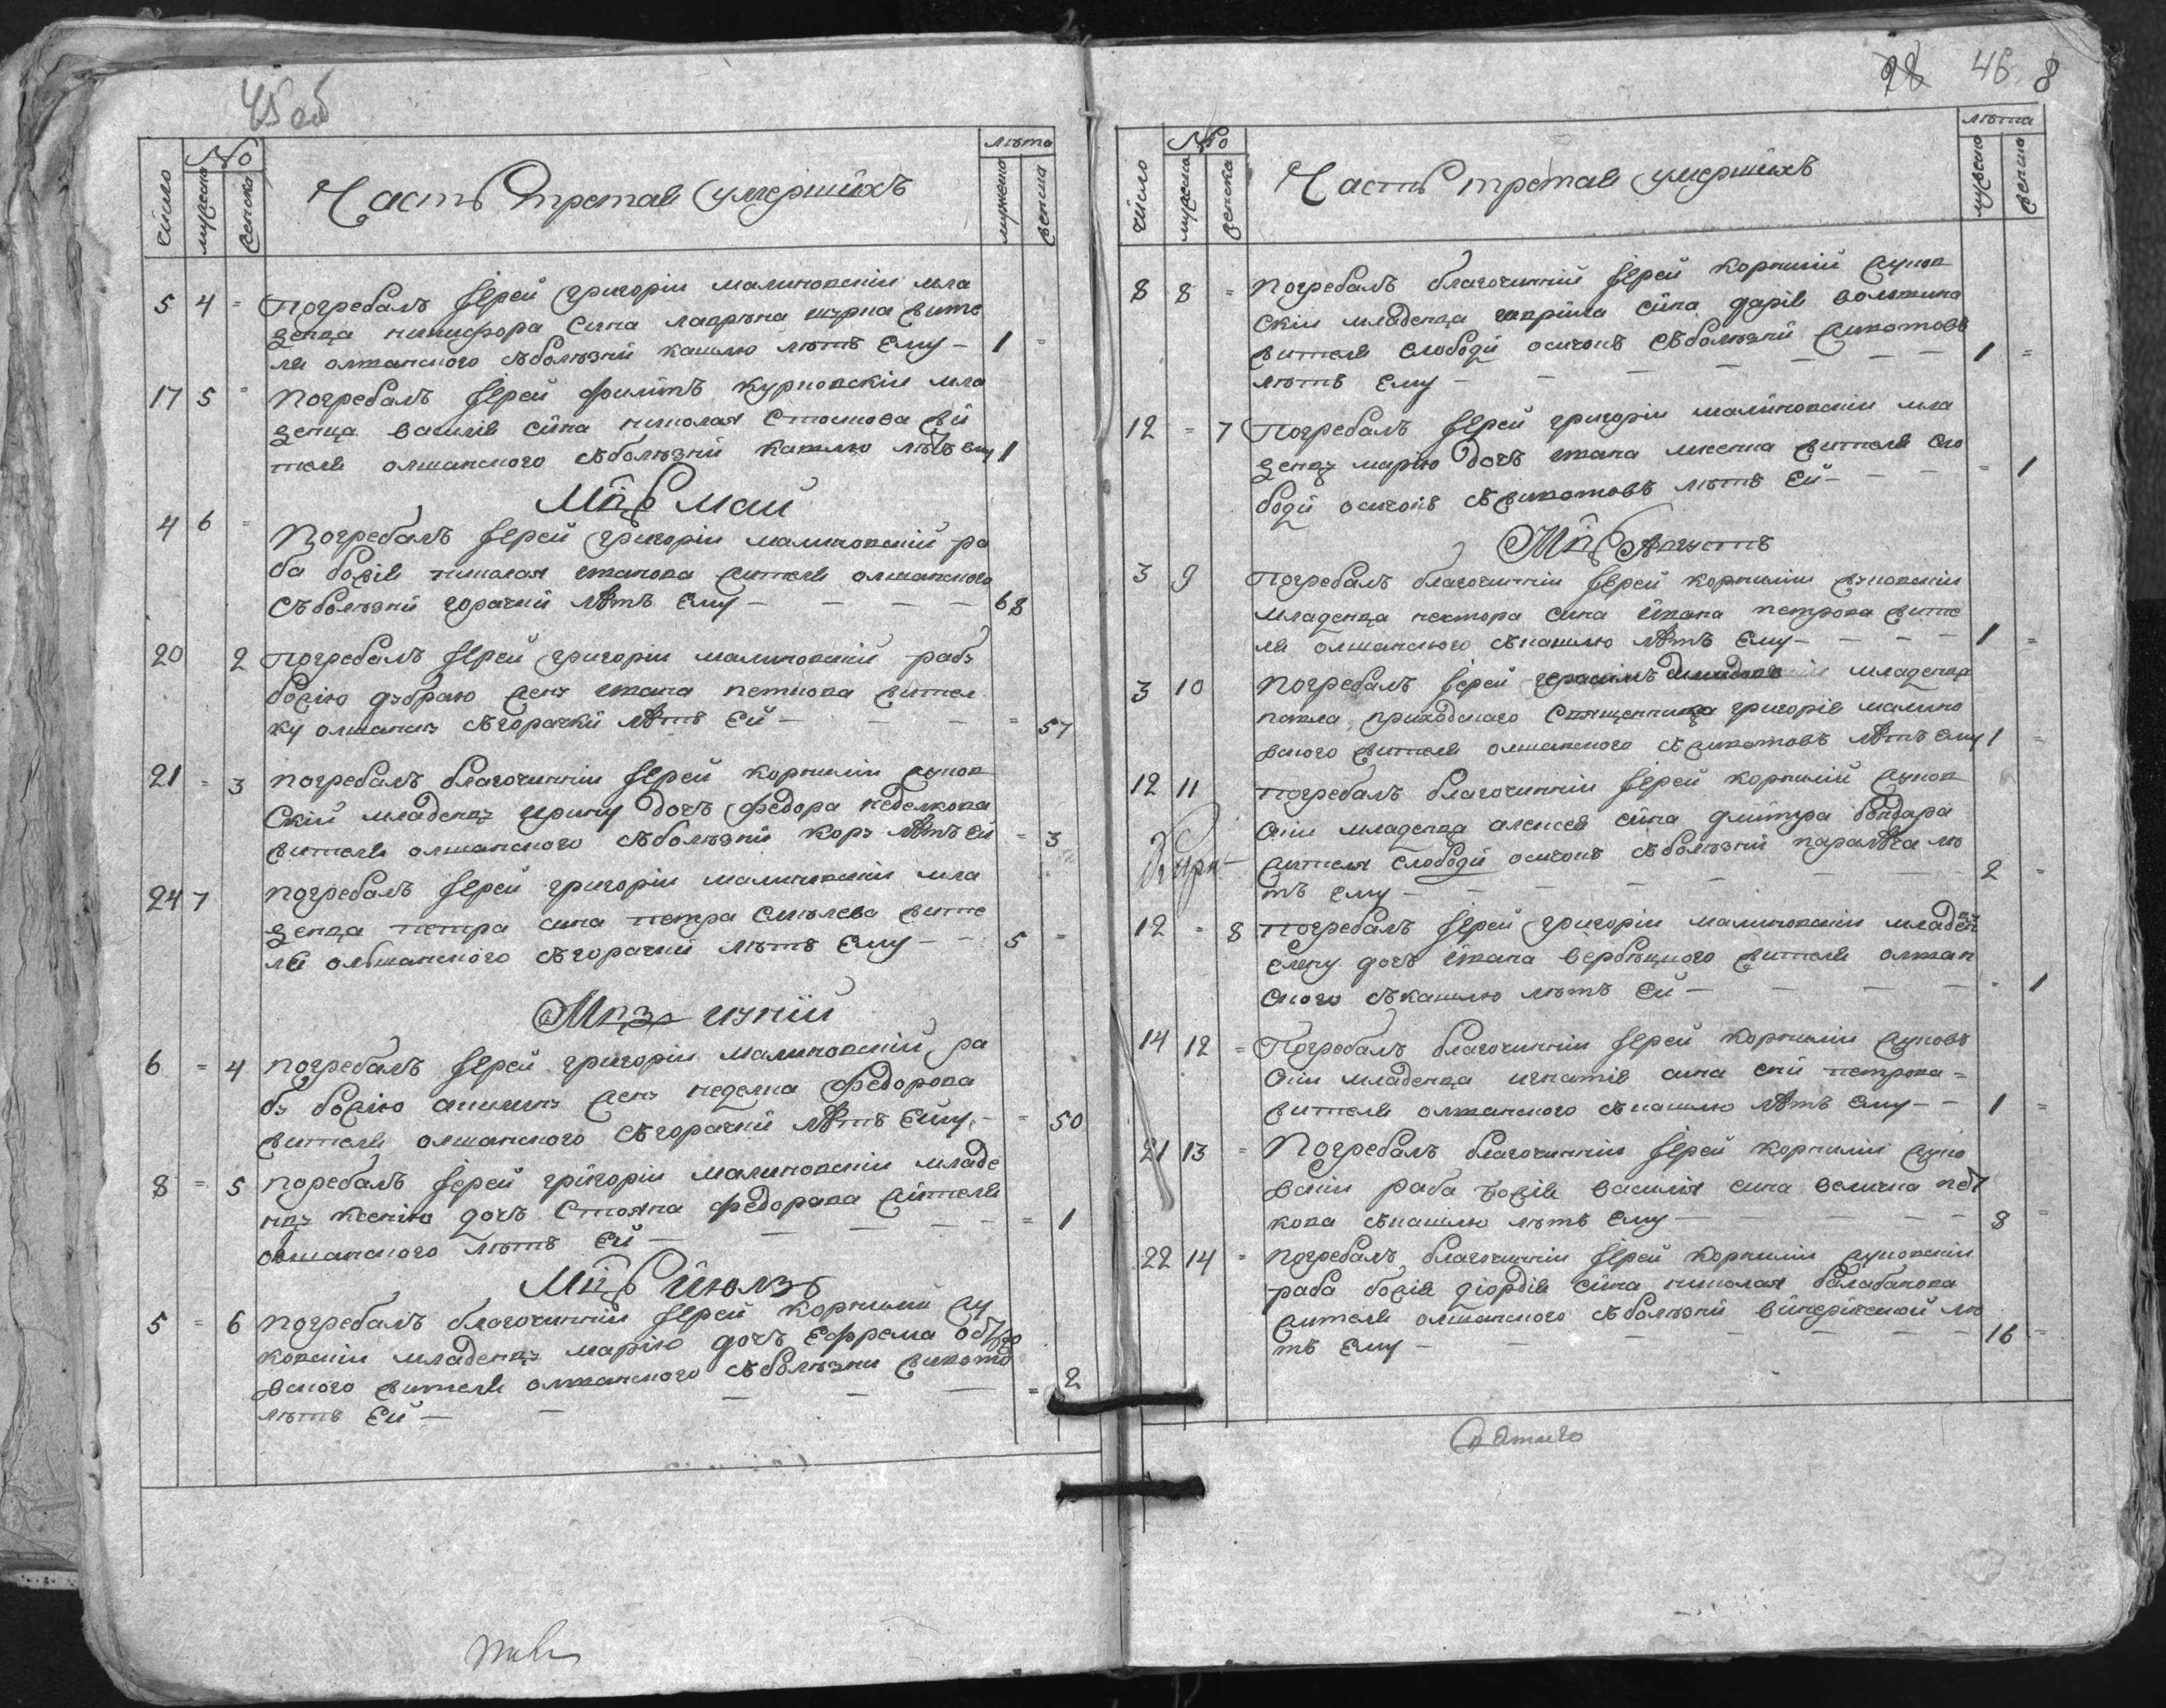 45 об
число
No
мужеска
женска
Часть третая умершихъ
лѣта
мужеска
женска
5 4 = Погребалъ Іерей григоріи малиновскіи мла
денца никифора сина лавръна жите
ля олшанского съболѣзній кашлю лѣтъ Ему — 1 =
17 5 = Погребалъ Іерей филипъ курновскіи мла
денца василія сина николая Стоикова жи
теля олшанского съболѣзній кашлю лѣтъ ему 1
Мцъ Маи
4 6 = Погребалъ Іерей григоріи малиновскій ра
ба божія николая иванова жителя олшанского
съболѣзній горачкій лѣтъ Ему — — — — 68
20 2 Погребалъ Іерей григоріи малиновскій рабъ
божію добраю жену ивана петкова жител
ку олшанск съгорачкій лѣтъ Ей — — — = 57
21 = 3 погребалъ благочинніи Іерей корнилій жуков
Скій младенцъ ирину дочъ федора неделкова
жителя олшанского съболѣзній кору лѣтъ ей = 3
24 7 погребалъ Іерей григоріи малиновскіи мла
денца петра сина петра жите
ля олшанского съгорачкій лѣтъ Ему — — 5 =
Мцъ иуній
6 = 4 погребалъ Іерей григоріи малиновскій ра
бъ божію жену неделка федорова
жителя олшанского съгорачкій лѣтъ Ему — = 50
8 = 5 поребалъ Іерей григоріи малиновскіи младе
нцъ ксенію дочъ Стояна федорова жителя
олшанского лѣтъ Ей — — — — = 1
Мцъ июль
5 = 6 погребалъ благочинній Іерей корнилий жу
ковскіи младенцъ марію дочъ Ефрема
вского жителя олшанского съболѣзни животъ
лѣтъ Ей — — — — — = 2
28 46 8
число
No
мужеска
женска
Часть третая умершихъ
лѣта
мужеска
женска
8 8 = погребалъ благочинній Іерей корнилій жуков
скіи младенца гаврійла сина дарія
жителя слободи осичокъ съболѣзній животовъ
лѣтъ Ему — — — — — — — 1 =
12 = 7 Погребалъ Іерей григоріи малиновскіи мла
денцъ марію дочъ ивана жителя сло
боди осичокъ съживотовъ лѣтъ Ей — — = 1
Мцъ Августъ
3 9 Погребалъ благочинніи Іерей корниліи жуковскіи
младенца нестора сина ивана петрова жите
ля олшанского съкашлю лѣтъ Ему — — — — 1 =
3 10 Погребалъ Іерей герасимъ младенца
павла приходского Священника григорія малино
вского жителя олшанского съживотовъ лѣтъ ему 1 =
12 11 Погребалъ благочинній Іерей корнилій жуков
скіи младенца алексея сина дмитра бондара
жителя слободи осичокъ съболѣзній паралѣча лѣ
тъ Ему — — — — — — — 2 =
12 = 8 Погребалъ Іерей григоріи малиновскіи младенцъ
Елену дочъ ивана вербѣцкого жителя олшан
ского съкашлю лѣтъ Ей — — — — — = 1
14 12 = Погребалъ благочинніи Іерей корниліи жуковъ
скіи младенца игнатія сина петрова =
жителя олшанского съкашлю лѣтъ Ему — — 1 =
21 13 = Погребалъ благочинніи Іерей корниліи жуко
вскіи раба божія василія сина величка
кова съкашлю лѣтъ Ему — — — 8 =
22 14 = Погребалъ благочинніи Іерей корниліи жуковскіи
раба божія діордія сина николая балабанова
жителя олшанского съболѣзній лѣ
тъ Ему — — — — — — — 16 =